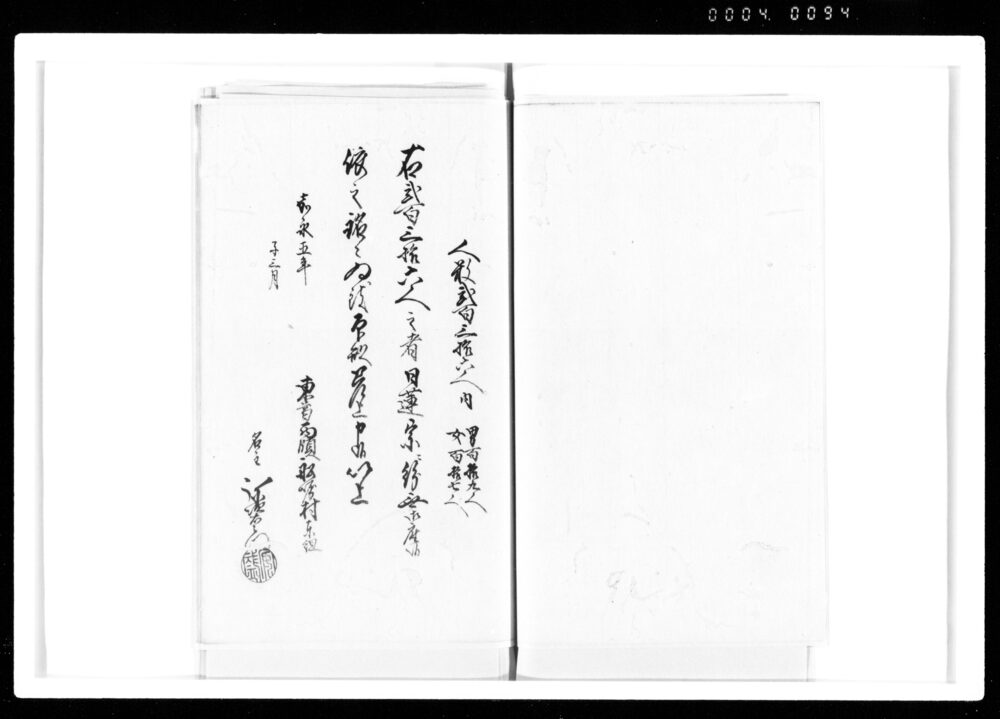 0004.0094
人数弐百三拾六人内
男百拾九人
女百拾七人
右弐百三拾六人之者日蓮宗ニ紛無御座候
依之銘々為致印形差上申候以上
嘉永五年
子三月
東葛西領 村東組
名主